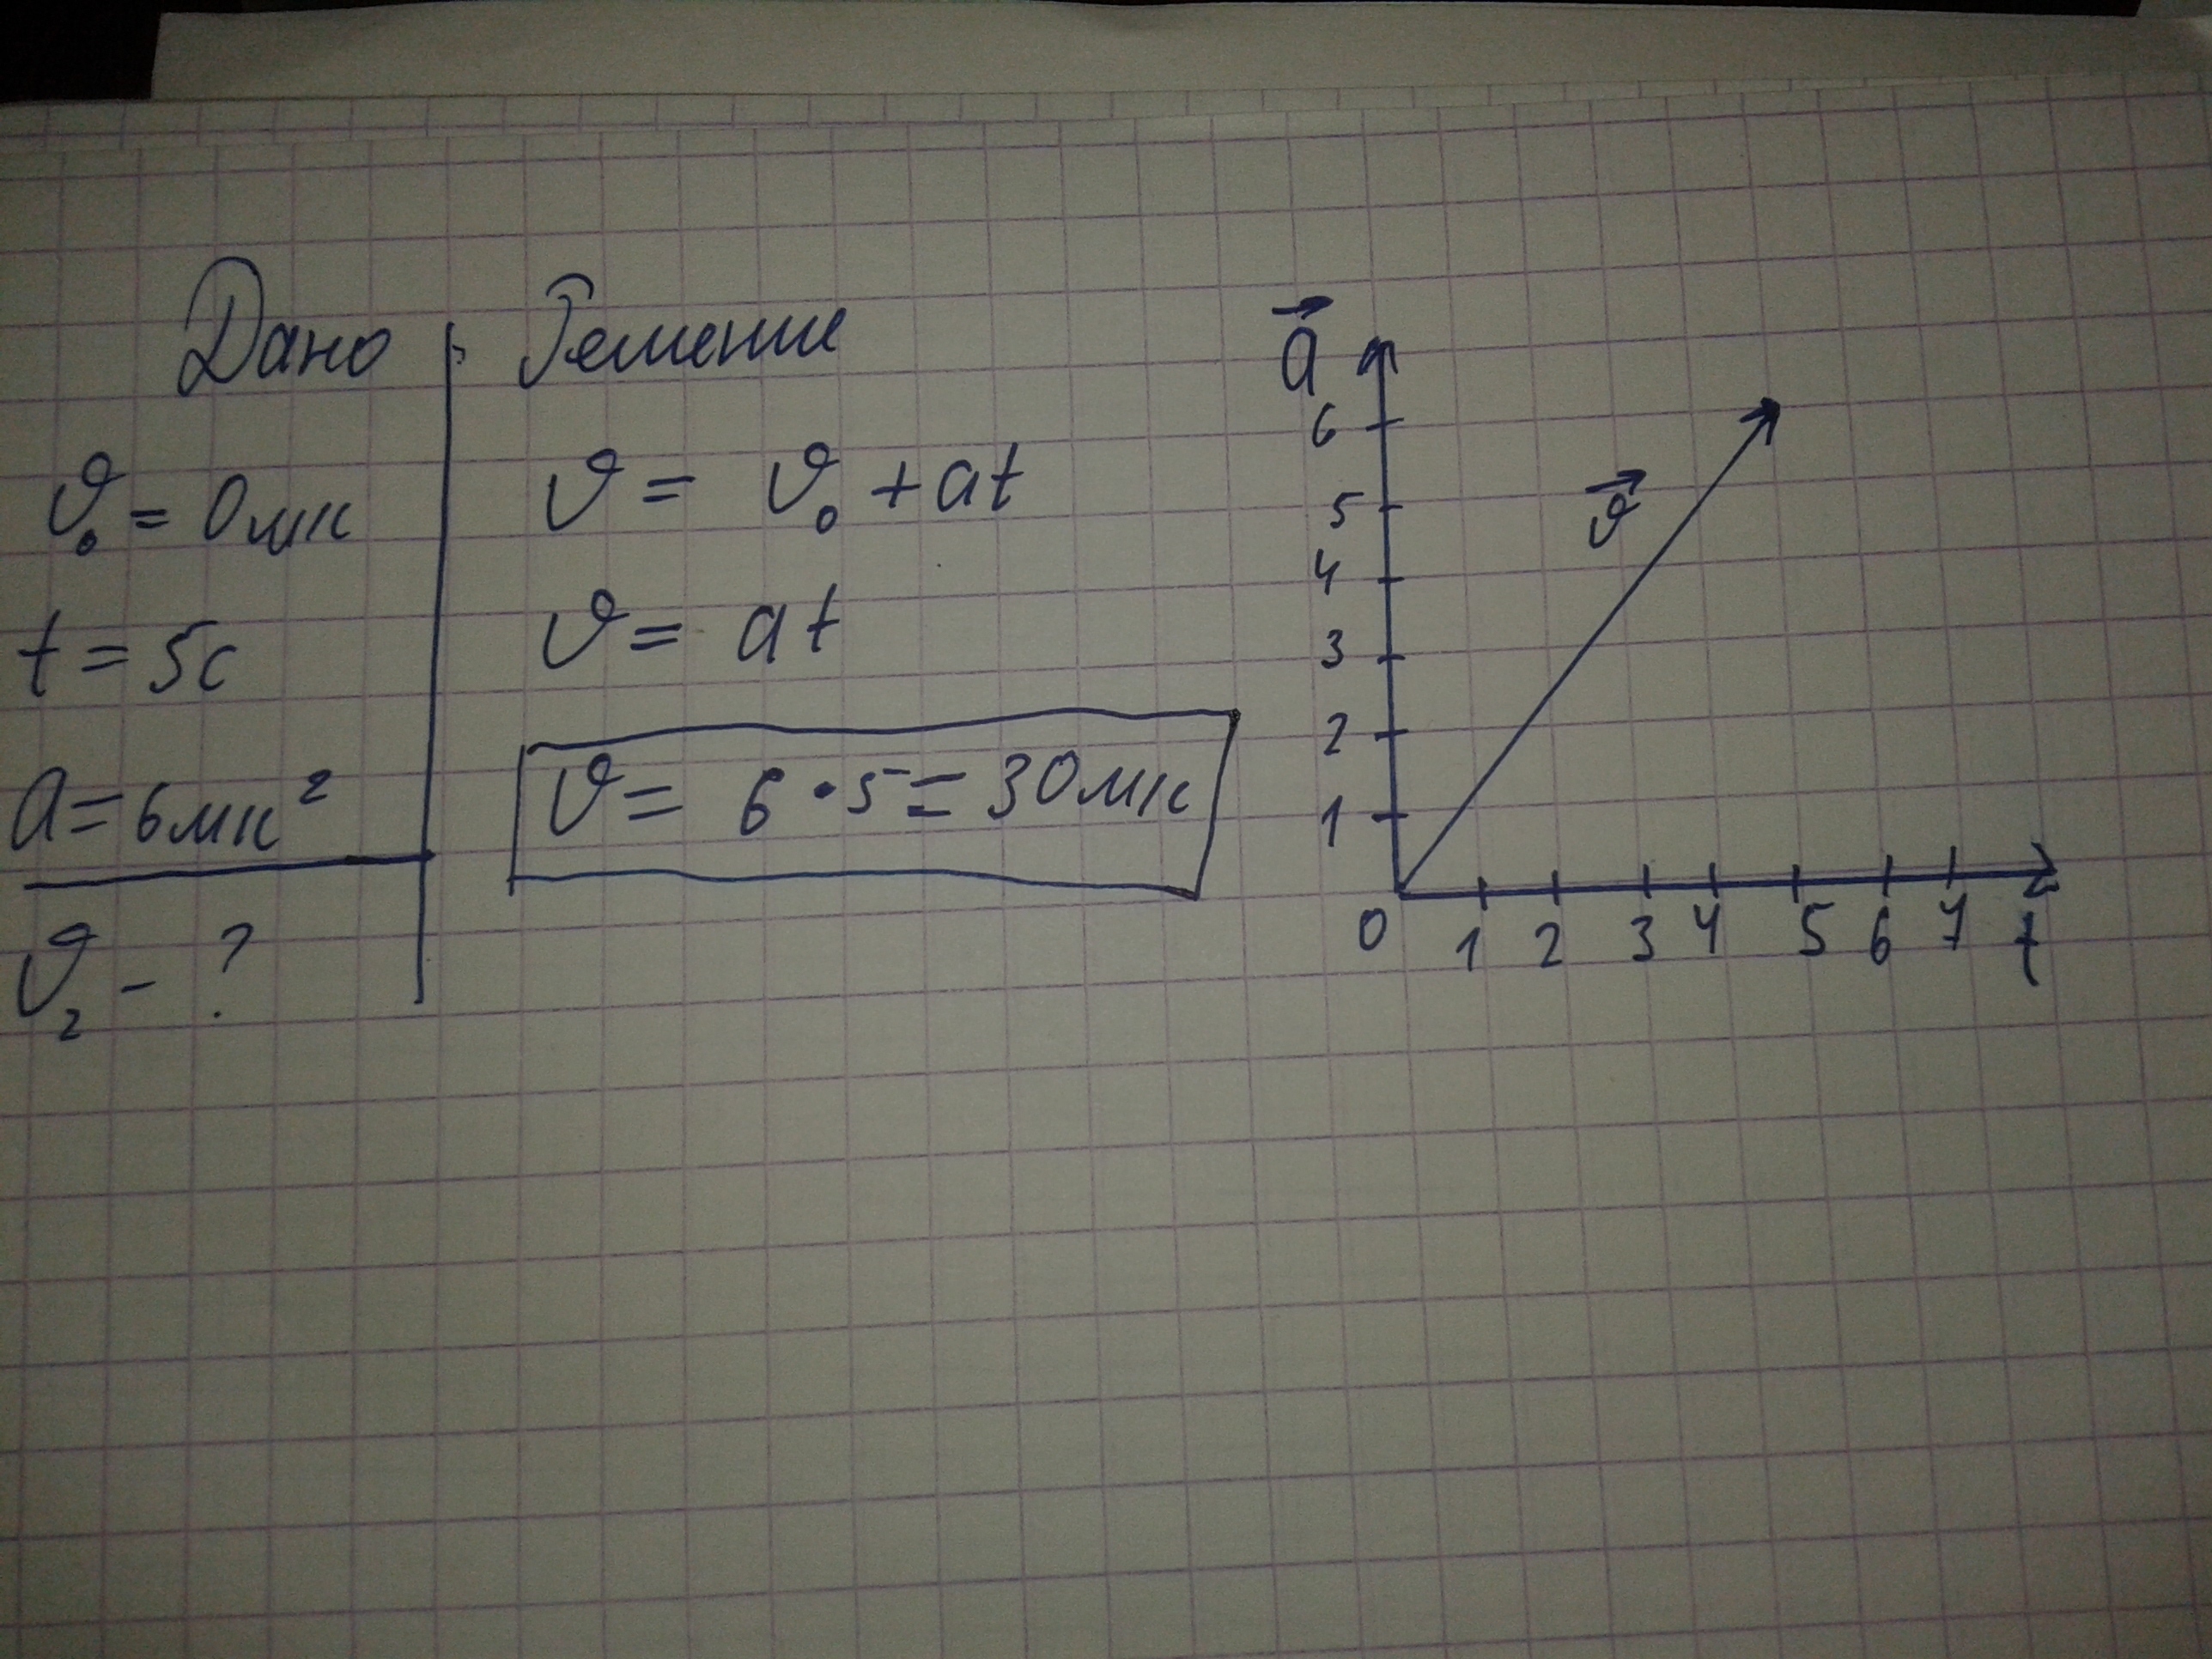 Дано
ϑ₀ = 0м/с
t = 5с
a = 6м/с²
ϑ₂ - ?
Решение
ϑ = ϑ₀ + at
ϑ = at
ϑ = 6 · 5 = 30м/с
a⃗
6
5
4
3
2
1
ϑ⃗
0 1 2 3 4 5 6 7 t